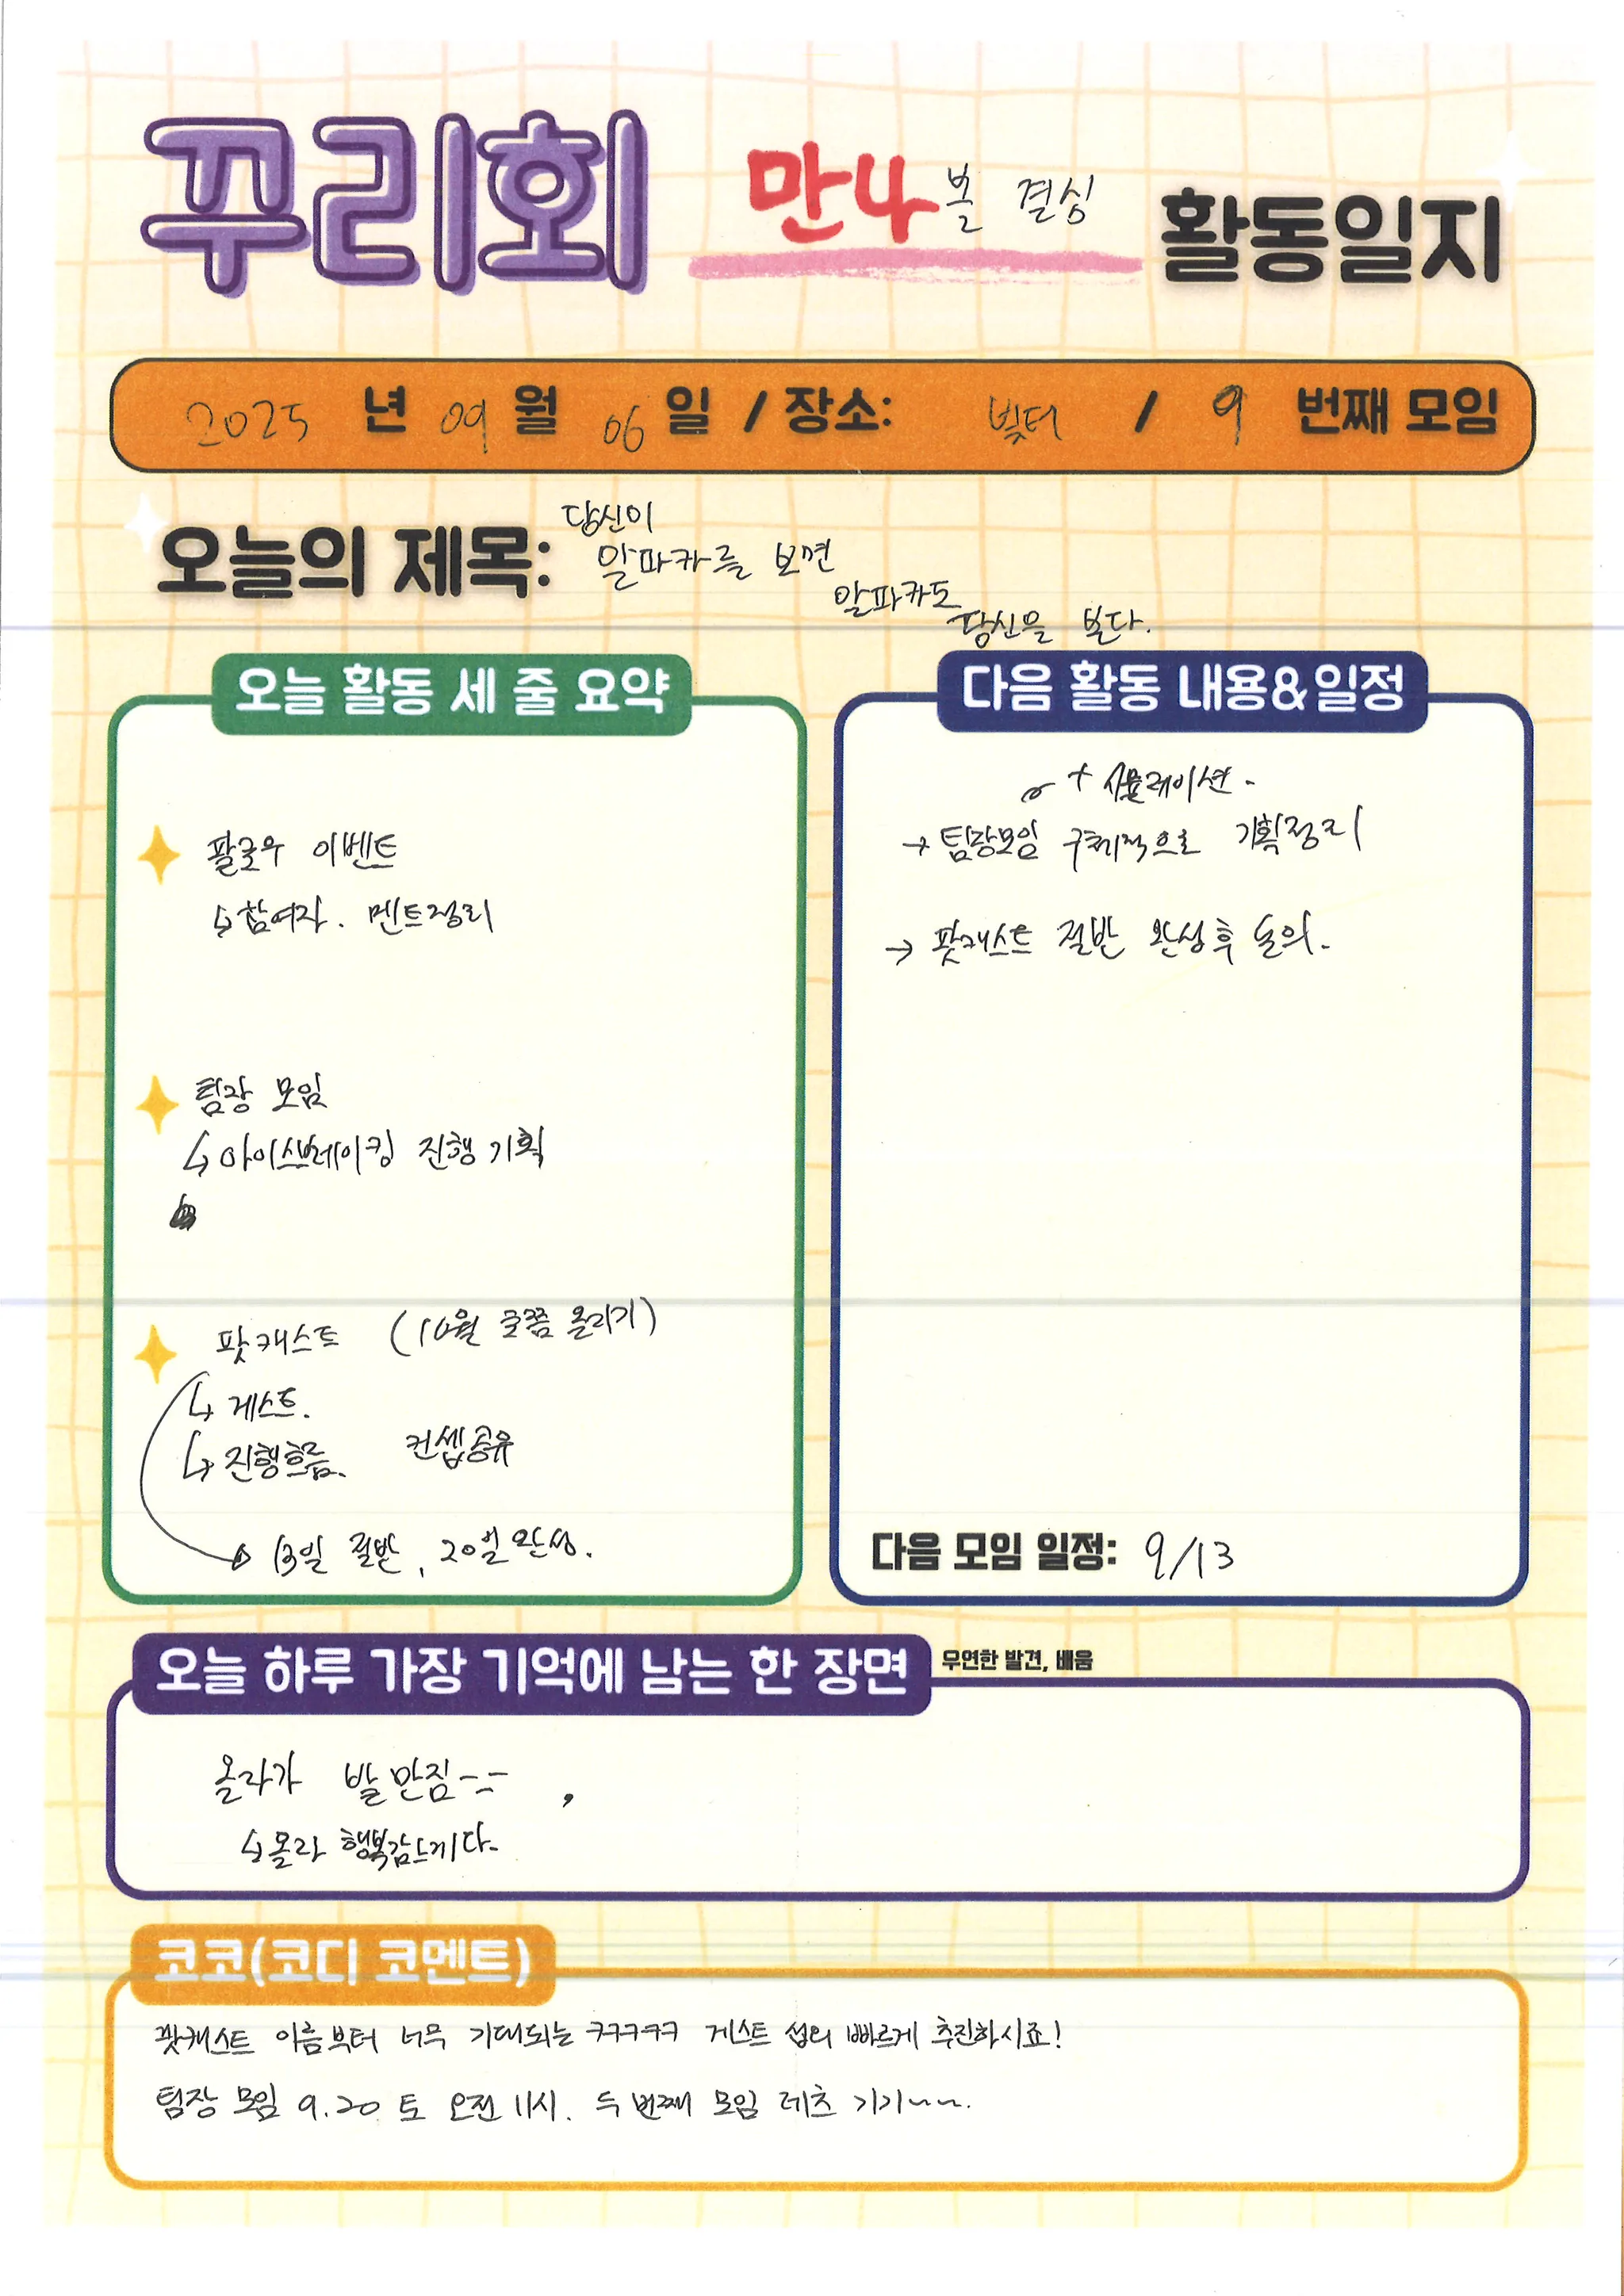 꾸리회 만나볼 결심 활동일지
2025 년 09 월 06 일 / 장소: 빛터 / 9 번째 모임
오늘의 제목: 당신이
알파카를 보면
알파카도
당신을 본다.
오늘 활동 세 줄 요약
팔로우 이벤트
↳ 참여자. 멘트정리
팀장 모임
↳ 아이스브레이킹 진행 기획
팟캐스트 (10월 초쯤 올리기)
↳ 게스트.
↳ 진행흐름. 컨셉공유
13일 절반, 20일 완성.
다음 활동 내용&일정
+ 시뮬레이션.
→ 팀장모임 구체적으로 기획정리
→ 팟캐스트 절반 완성 후 논의.
다음 모임 일정: 9/13
오늘 하루 가장 기억에 남는 한 장면 우연한 발견, 배움
올라가 발 만짐
↳ 올라 행복감느끼다.
코코(코디 코멘트)
팟캐스트 이름부터 너무 기대되는 ㅋㅋㅋㅋㅋ 게스트 섭외 빠르게 추진하시죠!
팀장 모임 9.20 토 오전 11시. 두 번째 모임 레츠 기기~~.